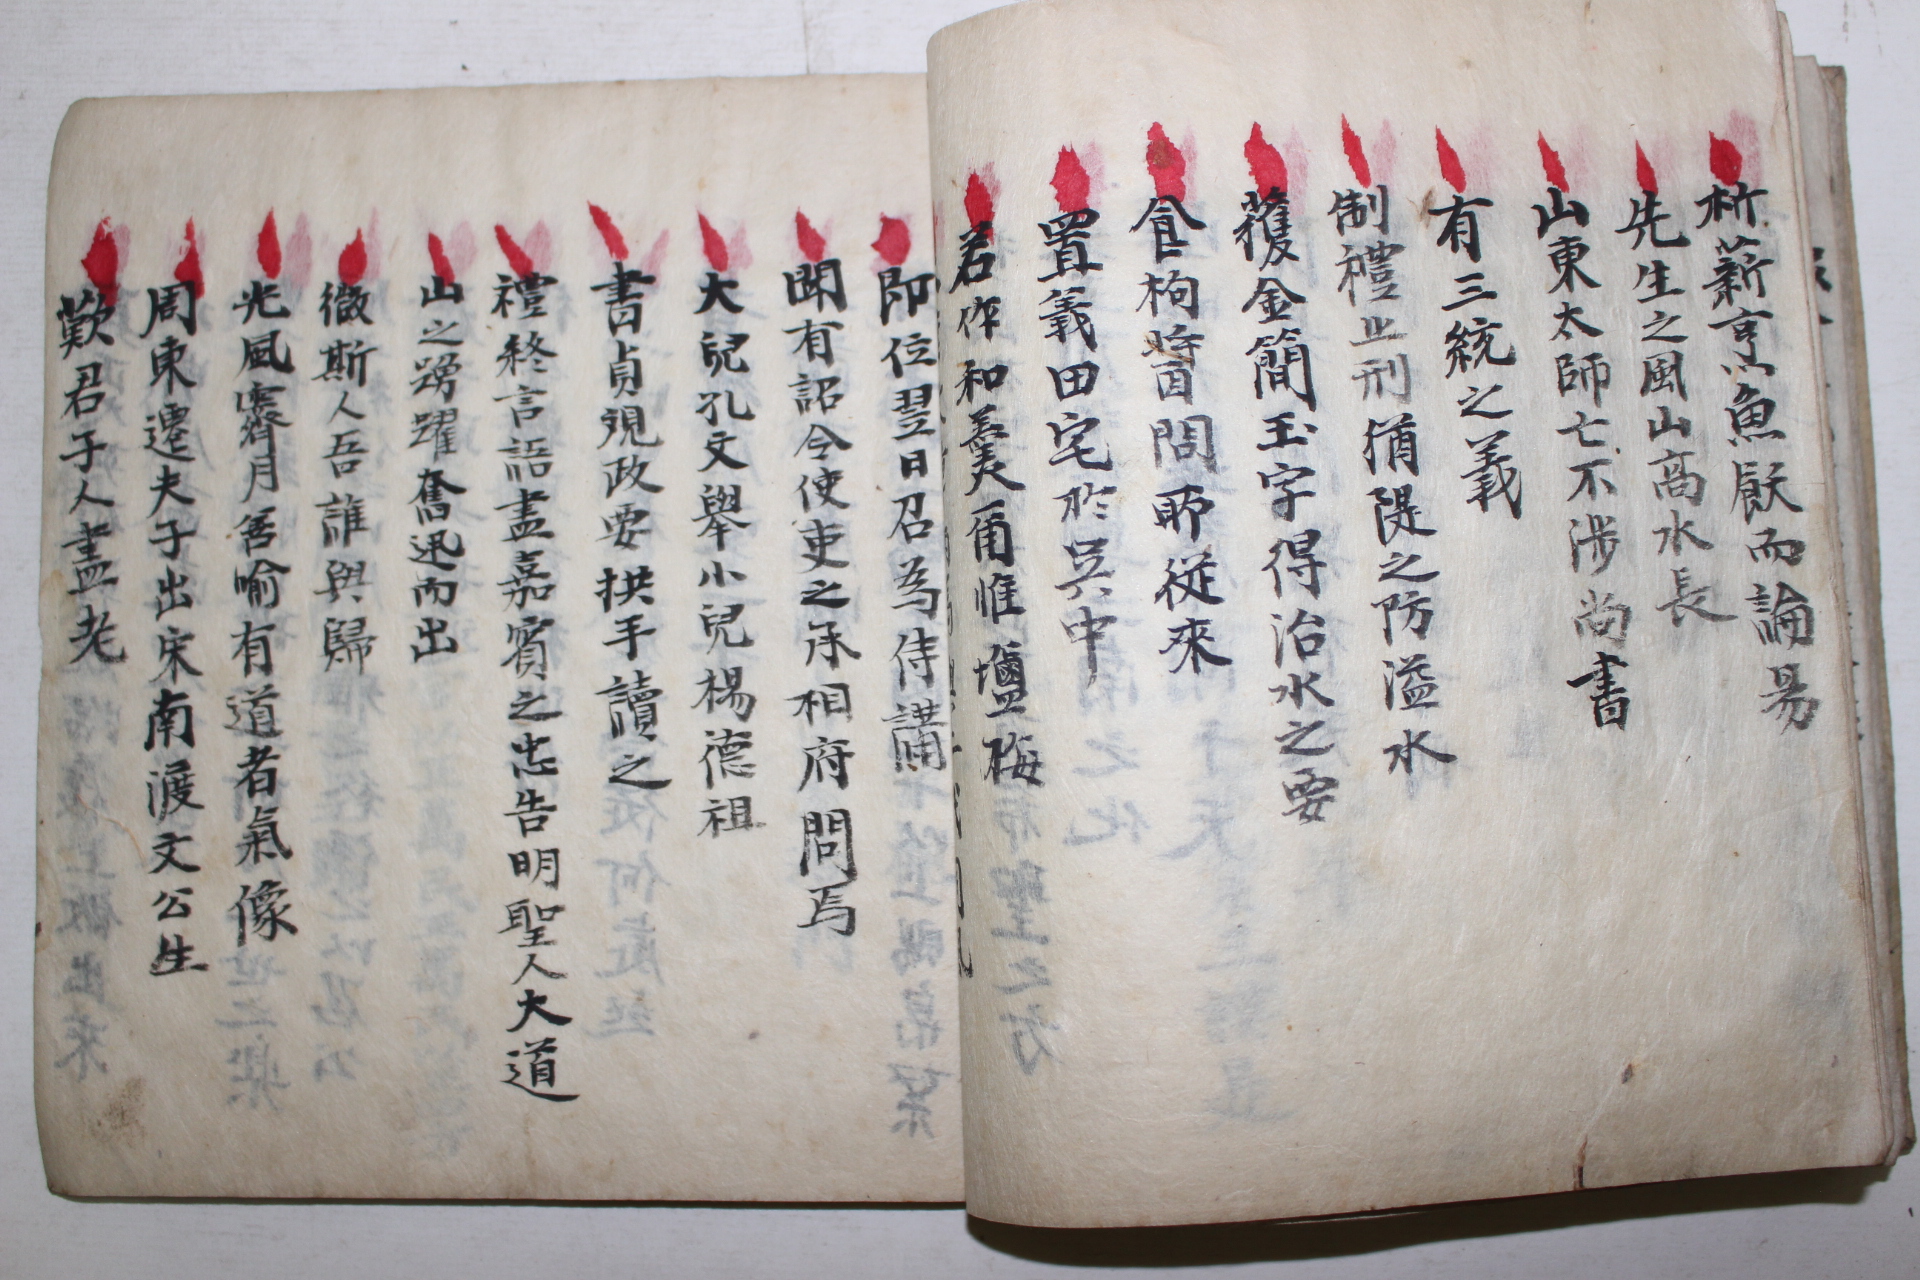 析薪烹魚厭而論易
先生之風山高水長
山東太師亡不涉尚書
有三統之義
制禮止刑猶隄之防溢水
獲金簡玉字得治水之要
食枸醬問所從來
置義田宅於吳中
君作和羹爾惟塩梅
即位翌日召為侍講
聞有詔令使吏之丞相府問焉
大兒孔文舉小兒楊德祖
書貞觀政要拱手讀之
禮終言語盡嘉賓之忠告明聖人大道
山之踴躍奮迅而出
微斯人吾誰與歸
光風霽月善喻有道者氣像
周東遷夫子出宋南渡文公生
歎君子人盡老